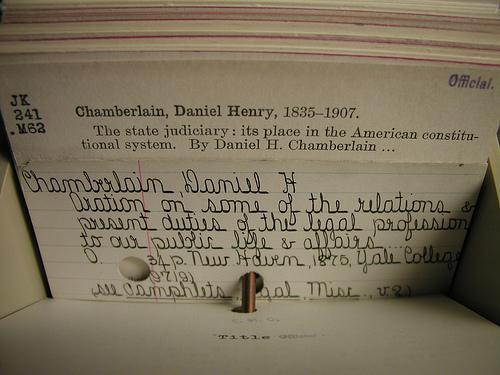 Official.
JK
241
.M62
Chamberlain, Daniel Henry, 1835–1907.
The state judiciary: its place in the American constitu-
tional system. By Daniel H. Chamberlain ...
Chamberlain Daniel H
Oration on some of the relations &
present duties of the legal profession
to our public life & affairs
O. 34 p. New Haven, 1875, Yale College
see Pamphlets, Legal Misc., v.2)
Title